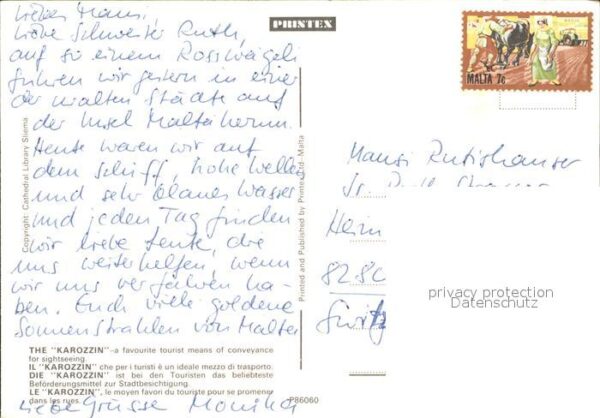 Liebe Schwester Ruth,
auf so einem Rosswägeli
fuhren wir gestern in einer
der uralten Städte auf
der Insel Malta herum.
Heute waren wir auf
dem Schiff, hohe Wellen
und sehr blaues Wasser
und jeden Tag finden
wir liebe Leute, die
uns weiterhelfen, wenn
wir uns verfahren ha-
ben. Euch viele goldene
Sonnenstrahlen von Malta
Liebe Grüsse Monika
PRINTEX
MALTA 7c
Copyright: Cathedral Library Sliema
Printed and Published by Printex Ltd. Malta
Rutishauser
Heim
8280
privacy protection
Datenschutz
THE "KAROZZIN"–a favourite tourist means of conveyance
for sightseeing.
IL "KAROZZIN" che per i turisti è un ideale mezzo di trasporto.
DIE "KAROZZIN" ist bei den Touristen das beliebteste
Beförderungsmittel zur Stadtbesichtigung.
LE "KAROZZIN", le moyen favori du touriste pour se promener
dans les rues.
P86060